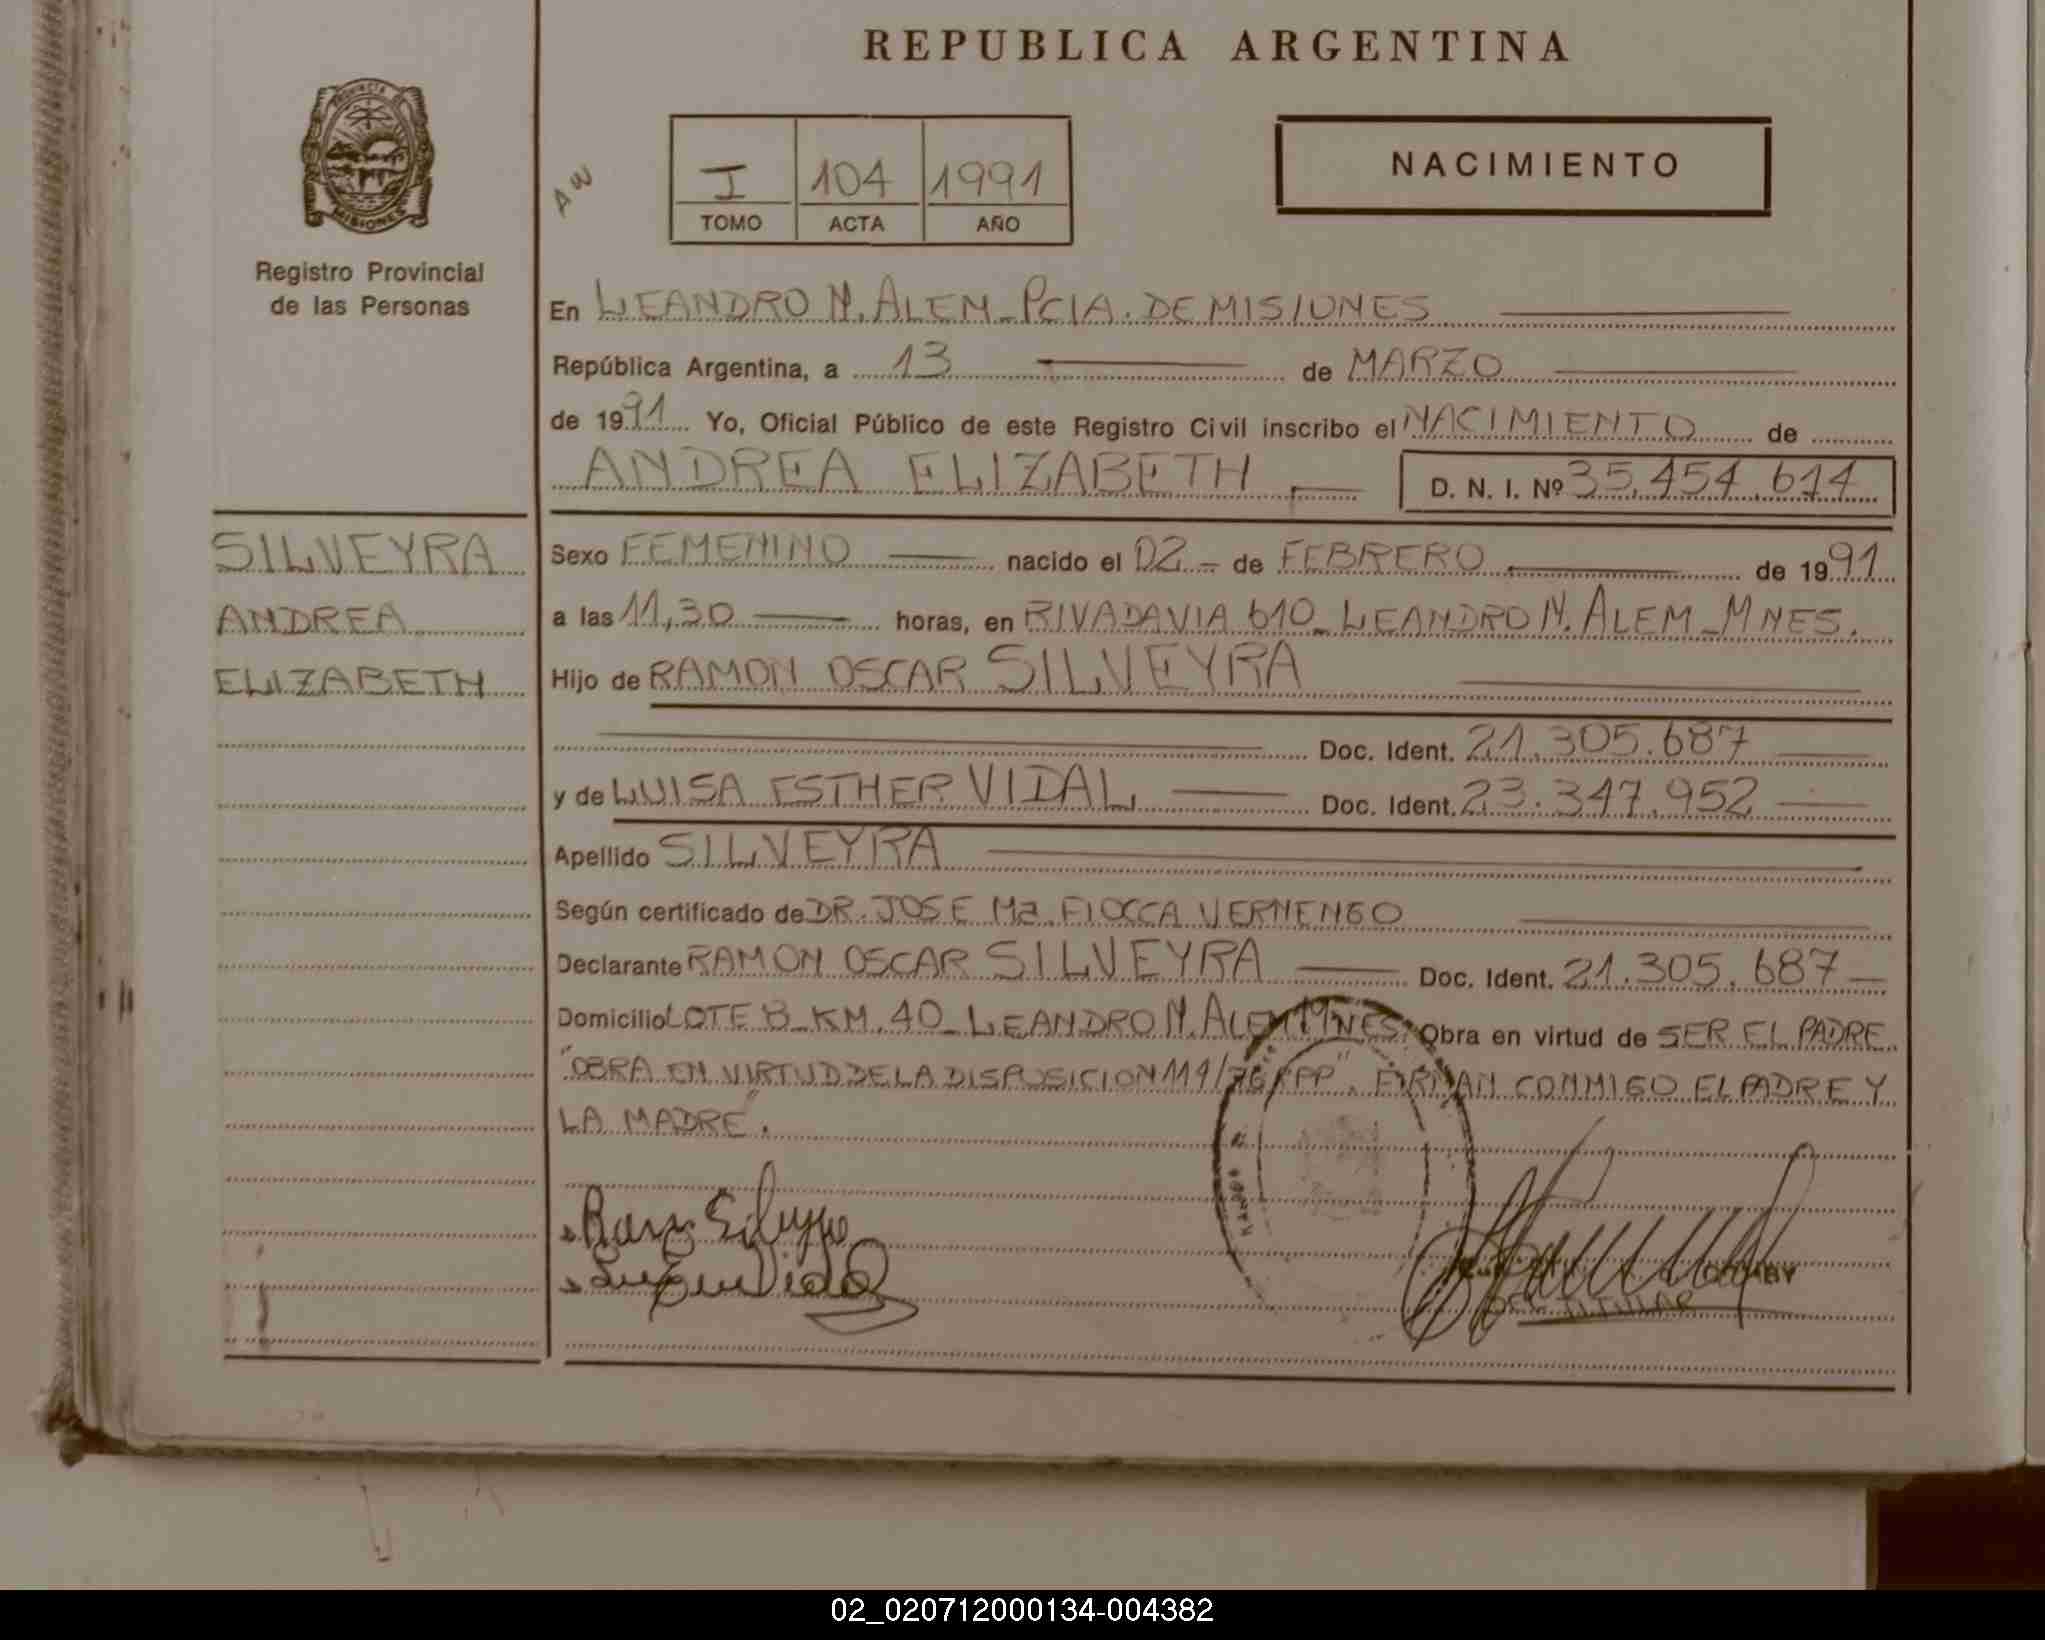 REPUBLICA ARGENTINA
PROVINCIA DE
MISIONES
Registro Provincial
de las Personas
I 104 1991
TOMO ACTA AÑO
NACIMIENTO
En LEANDRO N. ALEM - PCIA. DE MISIONES
República Argentina, a 13 de MARZO
de 1991 Yo, Oficial Público de este Registro Civil inscribo el NACIMIENTO de
ANDREA ELIZABETH D. N. I. Nº 35.454.614
SILVEYRA
ANDREA
ELIZABETH
Sexo FEMENINO nacido el 02 - de FEBRERO de 1991
a las 11,30 horas, en RIVADAVIA 610 - LEANDRO N. ALEM - MNES.
Hijo de RAMON OSCAR SILVEYRA
Doc. Ident. 21.305.687
y de LUISA ESTHER VIDAL Doc. Ident. 23.347.952
Apellido SILVEYRA
Según certificado de DR. JOSE Mª FIOCCA VERNENGO
Declarante RAMON OSCAR SILVEYRA Doc. Ident. 21.305.687
Domicilio LOTE B - KM. 40 - LEANDRO N. ALEM MNES. Obra en virtud de SER EL PADRE
"OBRA EN VIRTUD DE LA DISPOSICION 119/76 RPP". FIRMAN CONMIGO EL PADRE Y
LA MADRE".
DEL TITULAR
02_020712000134-004382